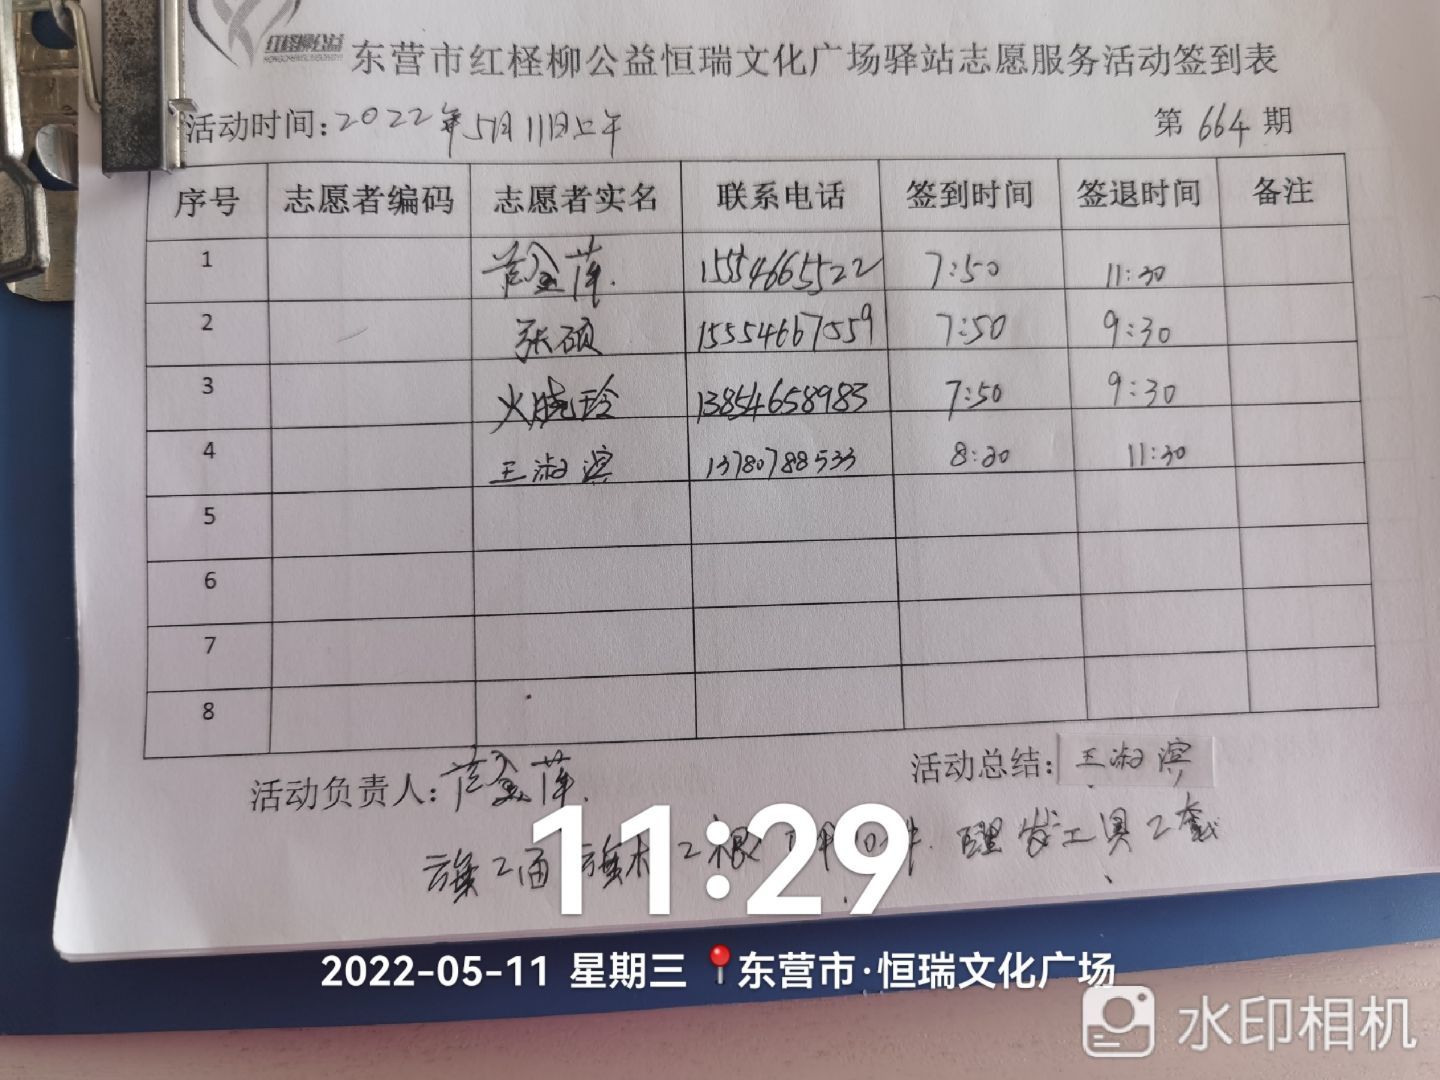 红柽柳公益
东营市红柽柳公益恒瑞文化广场驿站志愿服务活动签到表
活动时间:2022年5月11日上午 第 664 期
序号 志愿者编码 志愿者实名 联系电话 签到时间 签退时间 备注
1 15554665522 7:50 11:30
2 张硕 15554667559 7:50 9:30
3 火晓玲 13854658983 7:50 9:30
4 王淑滨 13780788533 8:30 11:30
5
6
7
8
活动负责人: 活动总结: 王淑滨
旗2面 旗杆2根 理发工具2套
11:29
2022-05-11 星期三 东营市·恒瑞文化广场
水印相机